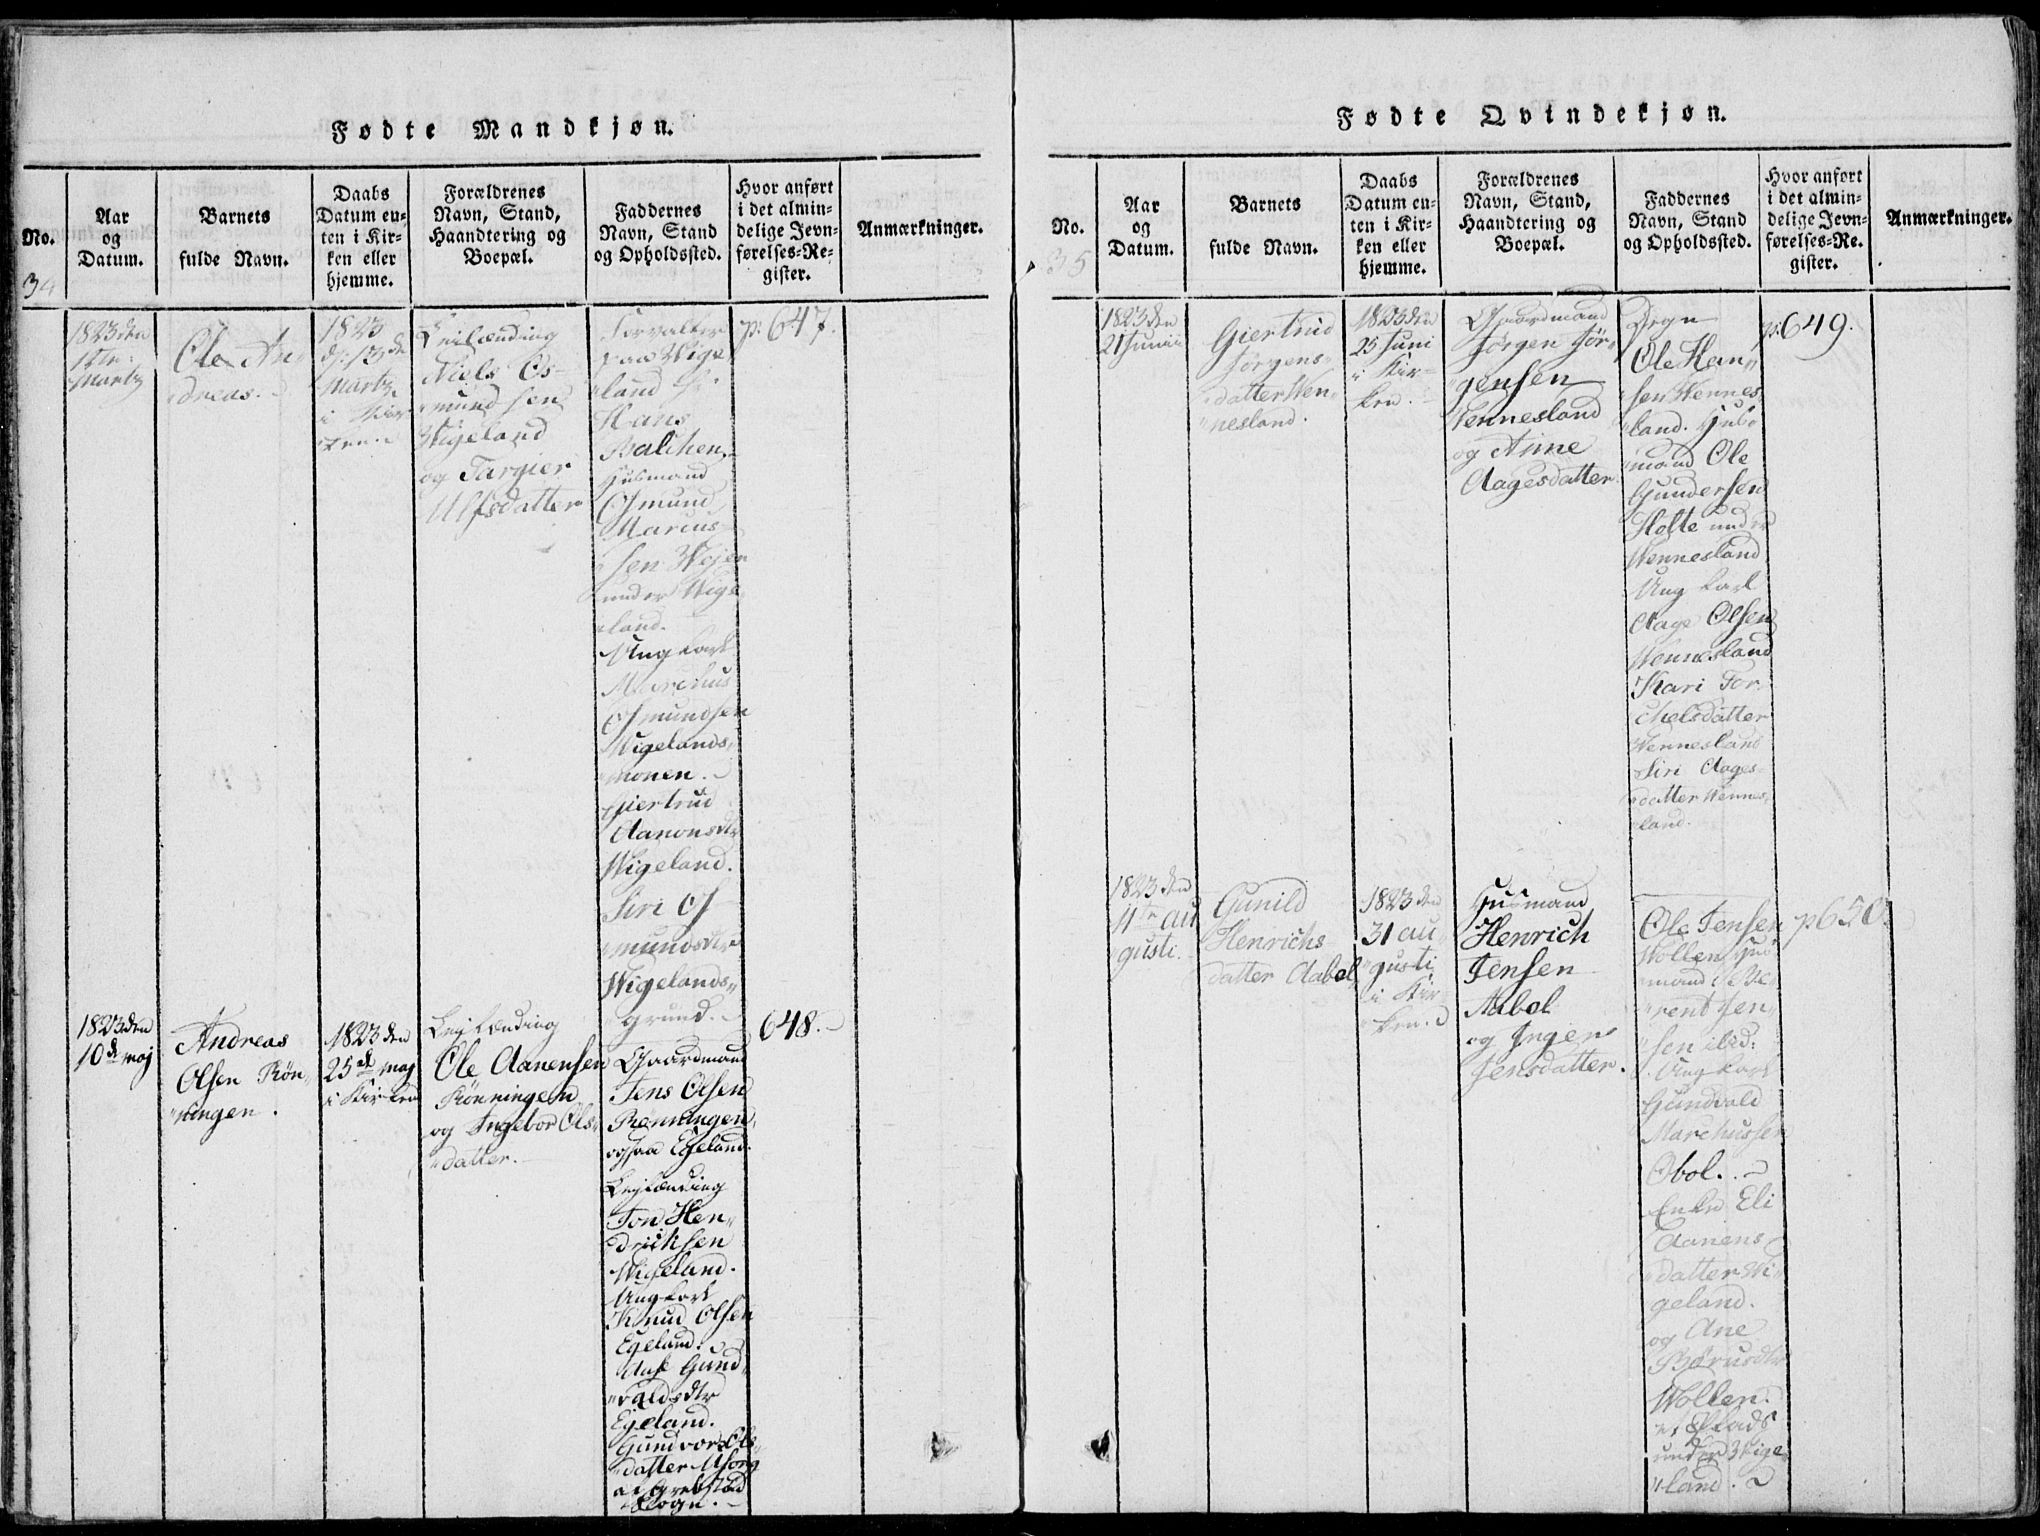 Fødte Mandkjøn.
No.
Aar
og
Datum.
Barnets
fulde Navn.
Daabs
Datum en-
ten i Kir-
ken eller
hjemme.
Forældrenes
Navn, Stand,
Haandtering og
Boepæl.
Faddernes
Navn, Stand
og Opholdssted.
Hvor anført
i det almin-
delige Jevn-
førelses-Re-
gister.
Anmærkninger.
34
1823 den
Martz
Ole An-
dreas.
1823
d: 13de
Martz
i Kir
ken.
Leilænding
Niels Os-
mundsen
Wigeland
og Targier
Ulfsdatter
Forvalter
paa Wige-
land Hr
Hans
Balchen.
Husmand
Osmund
Marcus-
sen Wejen
under Wige-
land.
Ung karl
Marchus
Osmundsen
Wigelands-
monen.
Giertrud
Aanonsdtr
Wigeland.
Siri Os-
mundsdtr
Wigelands-
grund.
p: 647.
1823 den
10de maj
Andreas
Olsen Rön-
ningen.
1823 den
25de maj
i Kirken
Lejlænding
Ole Aanensen
Rönningen
og Ingebor Ols-
datter.
Gaardmand
Jens Olsen
Rönningen,
ogsaa Egeland.
Lejlænding
Jon Hen-
dricksen
Wigeland.
Ung karl
Knud Olsen
Egeland.
Aase Gund-
valdsdtr
Egeland.
Gundvor Ols-
datter
Sogn.
648.
Fødte Qvindekjøn.
No.
Aar
og
Datum.
Barnets
fulde Navn.
Daabs
Datum en-
ten i Kir-
ken eller
hjemme.
Forældrenes
Navn, Stand,
Haandtering og
Boepæl.
Faddernes
Navn, Stand
og Opholdssted.
Hvor anført
i det almin-
delige Jevn-
førelses-Re-
gister.
Anmærkninger.
35
1823 den
21 Junii
Giertrud
Jörgens-
datter Wen-
nesland.
1823 den
25 Juni
i Kir-
ken.
Gaardmand
Jörgen Jör-
gensen
Wennesland
og Anne
Aagesdatter
Degn
Ole Han-
sen Wennes
land. Hus-
mand Ole
Gundersen
Holte under
Wennesland
Ung karl
Aage Olsen
Wennesland
Kari Tor-
chelsdatter
Wennesland
Siri Aages-
datter Wennes-
land.
p: 649.
1823 den
11te au
gusti.
Gunild
Henrichs-
datter Aabel
1823 den
31 au-
gusti
i Kir-
ken.
Husmand
Henrich
Jensen
Aabel
og Inger
Jensdatter.
Ole Jensen
Wollen Hus
mand
Jen-
sen ibid:
Ung karl
Gundvald
Marchussen
Obol.
Enke Eli
Aanens-
datter Wi-
geland.
og Ane
Wollen.
et Plads
under Wige-
land.
p 650.